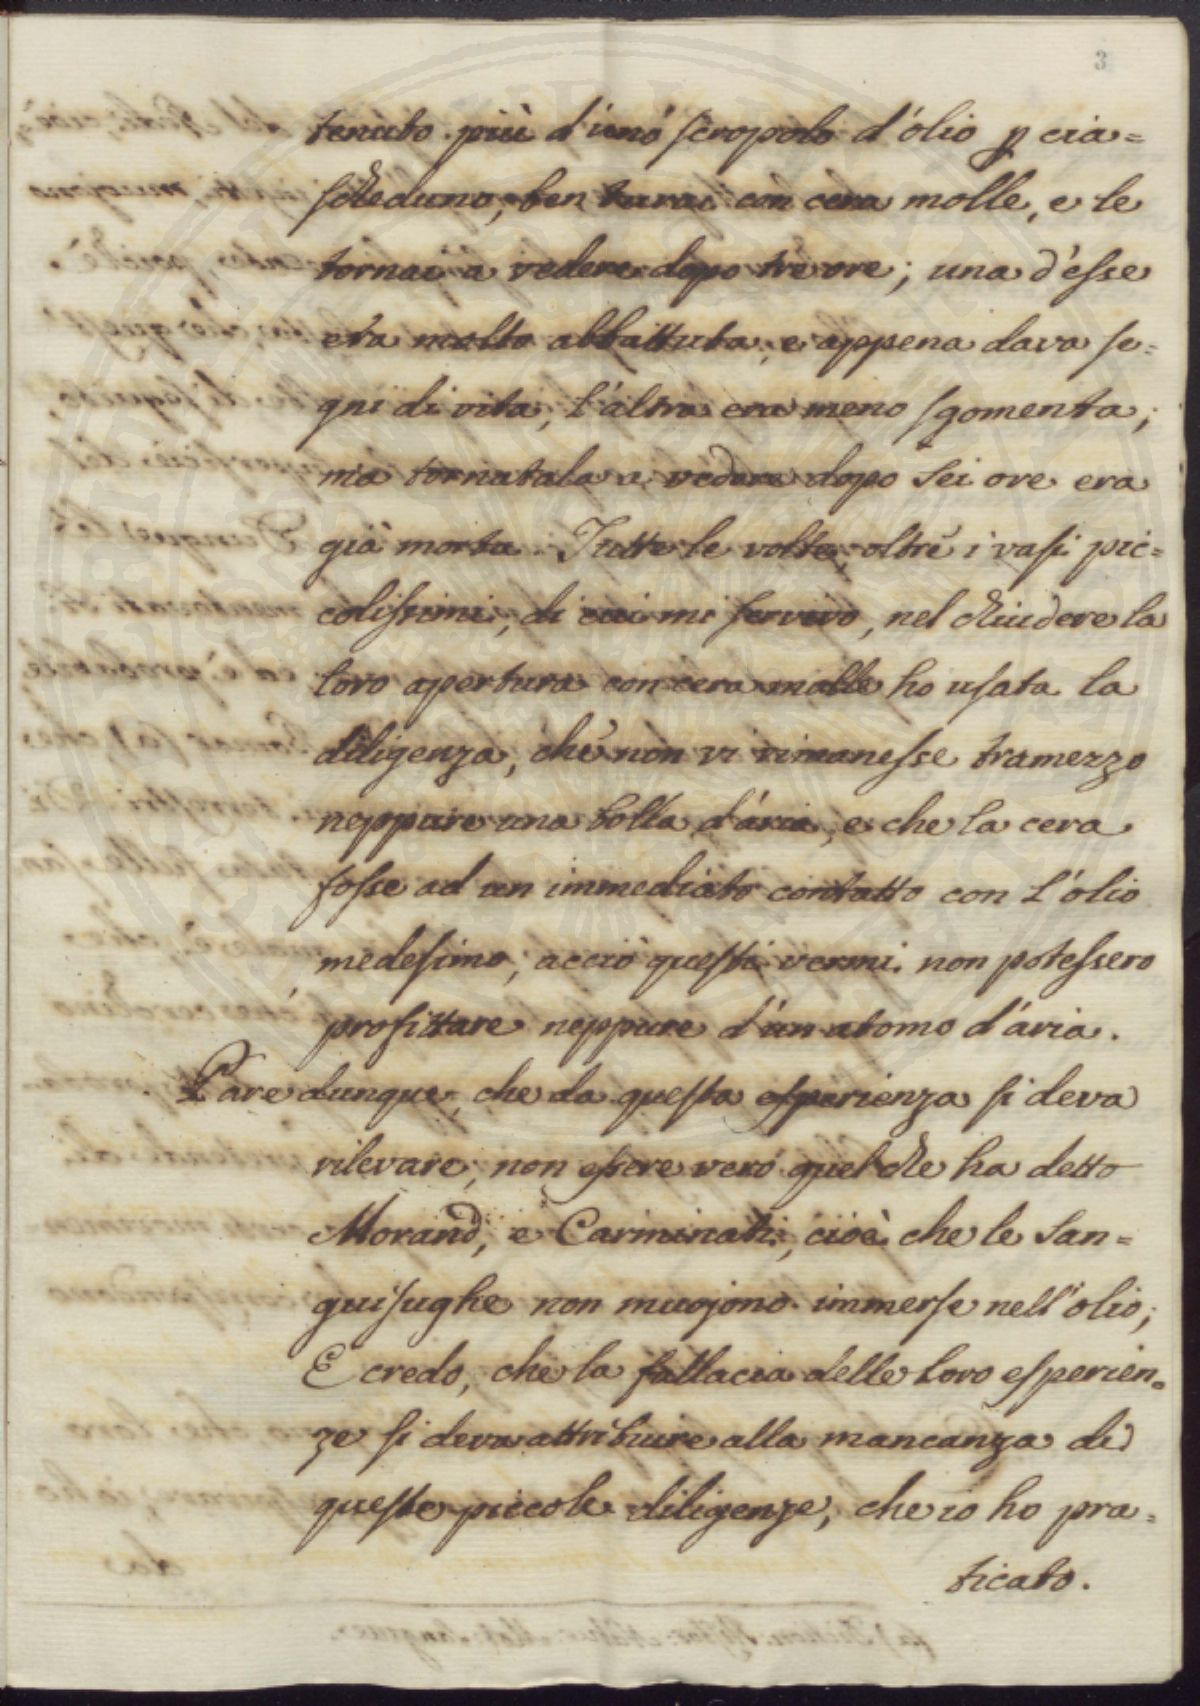 3
tenuto più d'uno scropolo d'olio p cia=
scheduno, ben turai con cera molle, e le
tornai a vedere dopo tre ore; una d'esse
era molto abbattuta, e appena dava se=
gni di vita, l'altra era meno sgomenta;
ma tornatala a vedere dopo sei ore era
già morta. Tutte le volte, oltre i vasi pic=
colissimi, di cui mi servivo, nel chiudere la
loro apertura con cera molle ho usata la
diligenza, che non vi rimanesse tramezzo
neppure una bolla d'aria, e che la cera
fosse ad un immediato contatto con l'olio
medesimo, acciò questi vermi non potessero
profittare neppure d'un atomo d'aria.
Pare dunque, che da questa esperienza si deva
rilevare, non essere vero quel che ha detto
Morand, e Carminati, cioè che le San=
guisughe non muojono immerse nell'olio;
E credo, che la fallacia delle loro esperien=
ze si deva attribuire alla mancanza di
queste piccole diligenze, che io ho pra=
ticato.